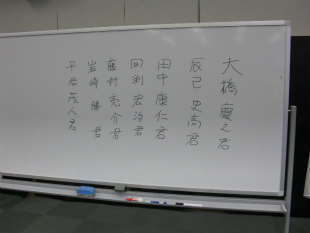 大橋 慶之君
辰己 史高君
田中 康仁君
宏治君
藤村 亮介君
岩崎 勝 君
平岩 茂人君